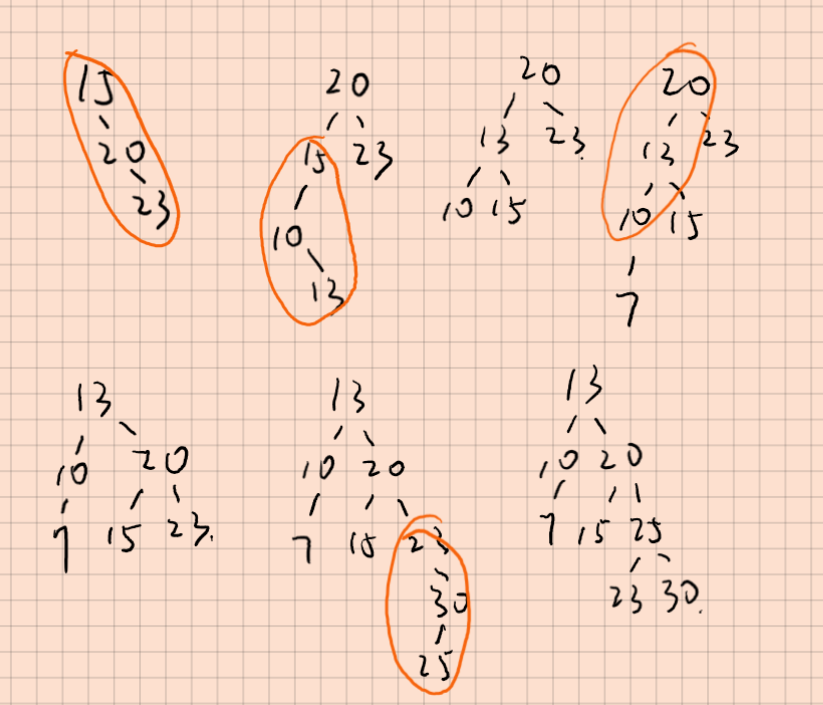 15
20
23
20
15 23
10
13
20
13 23.
10 15
20
13 23
10 15
7
13
10 20
7 15 23.
13
10 20
7 15 23
30
25
13
10 20
7 15 25
23 30.